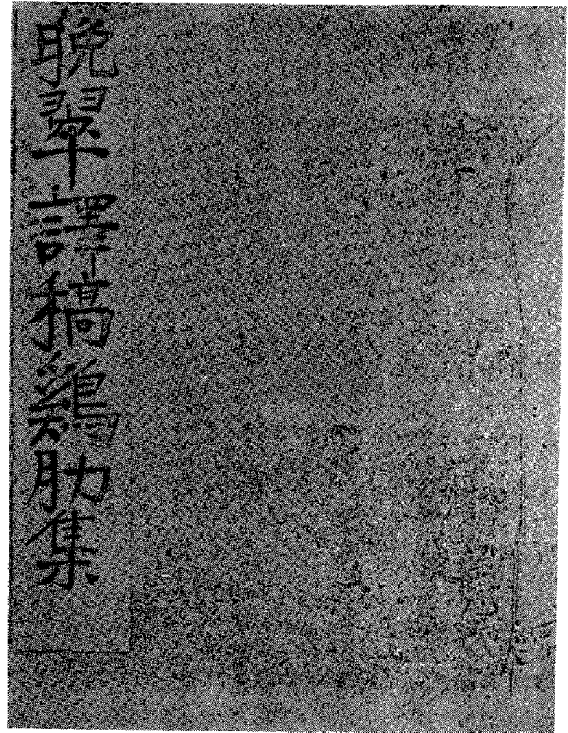 晩翠譯稿鷄肋集